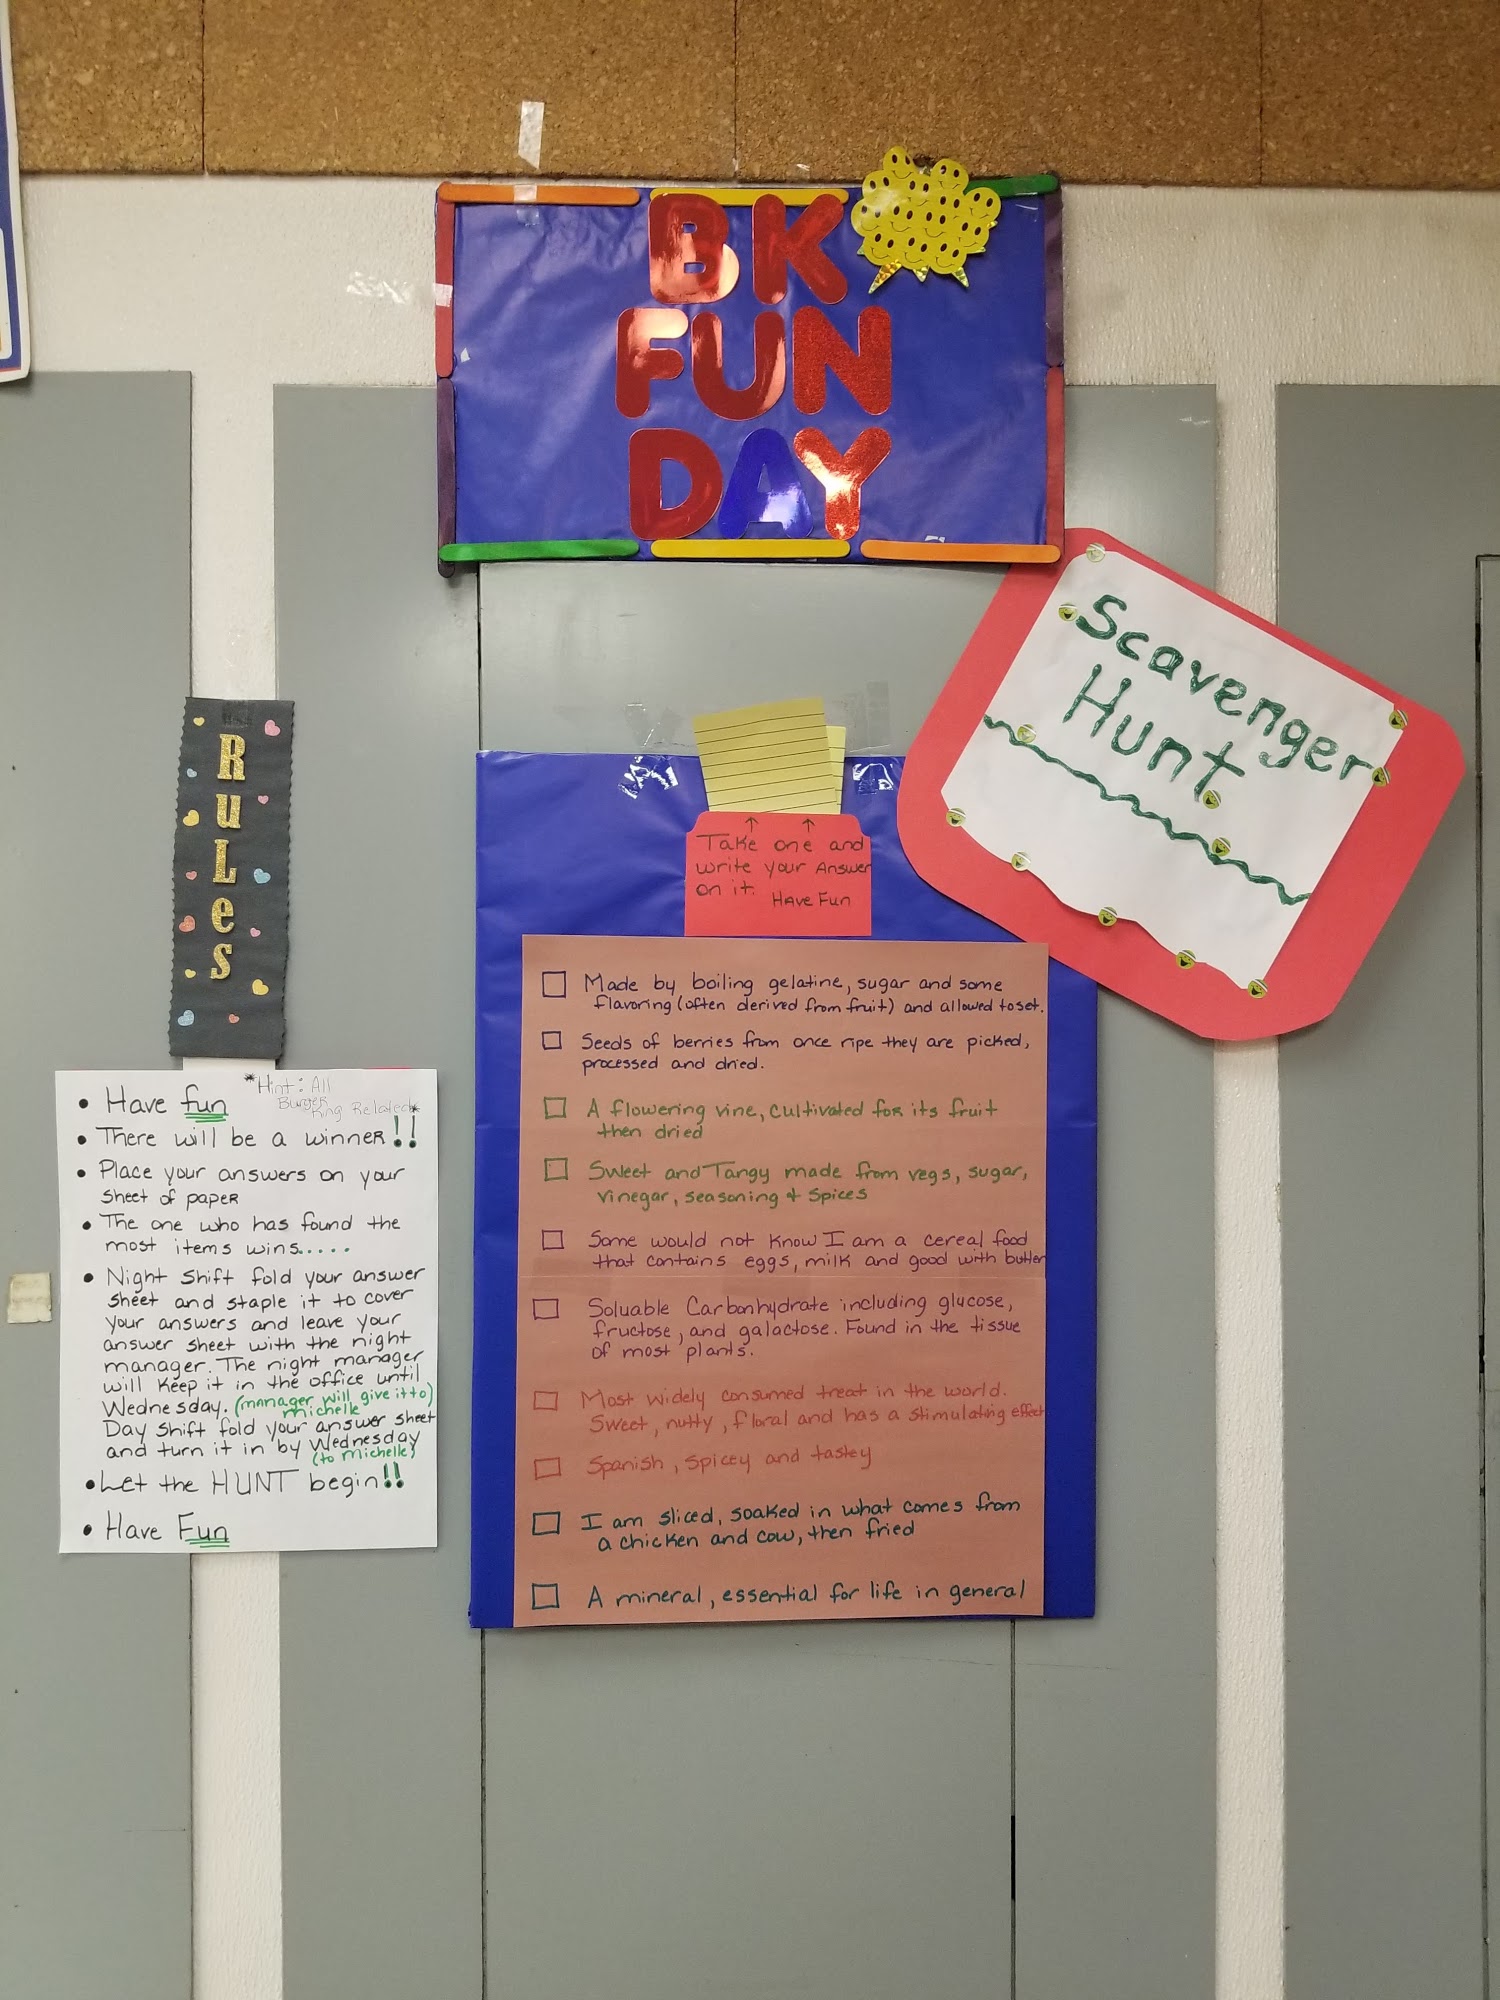 BK
FUN
DAY
Scavenger
Hunt
Rules
Take one and
write your Answer
on it. Have Fun
• Have fun
*Hint: All
Burger
King Related*
• There will be a winner!!
• Place your answers on your
sheet of paper
• The one who has found the
most items wins.....
• Night shift fold your answer
sheet and staple it to cover
your answers and leave your
answer sheet with the night
manager. The night manager
will keep it in the office until
Wednesday. (manager will give it to)
michelle
Day shift fold your answer sheet
and turn it in by Wednesday
(to michelle)
• Let the HUNT begin!!
• Have Fun
Made by boiling gelatine, sugar and some
flavoring (often derived from fruit) and allowed to set.
Seeds of berries from once ripe they are picked,
processed and dried.
A flowering vine, cultivated for its fruit
then dried
Sweet and Tangy made from vegs, sugar,
vinegar, seasoning + spices
Some would not know I am a cereal food
that contains eggs, milk and good with butter
Soluable Carbonhydrate including glucose,
fructose, and galactose. Found in the tissue
of most plants.
Most widely consumed treat in the world.
Sweet, nutty, floral and has a stimulating effect
Spanish, spicey and tastey
I am sliced, soaked in what comes from
a chicken and cow, then fried
A mineral, essential for life in general